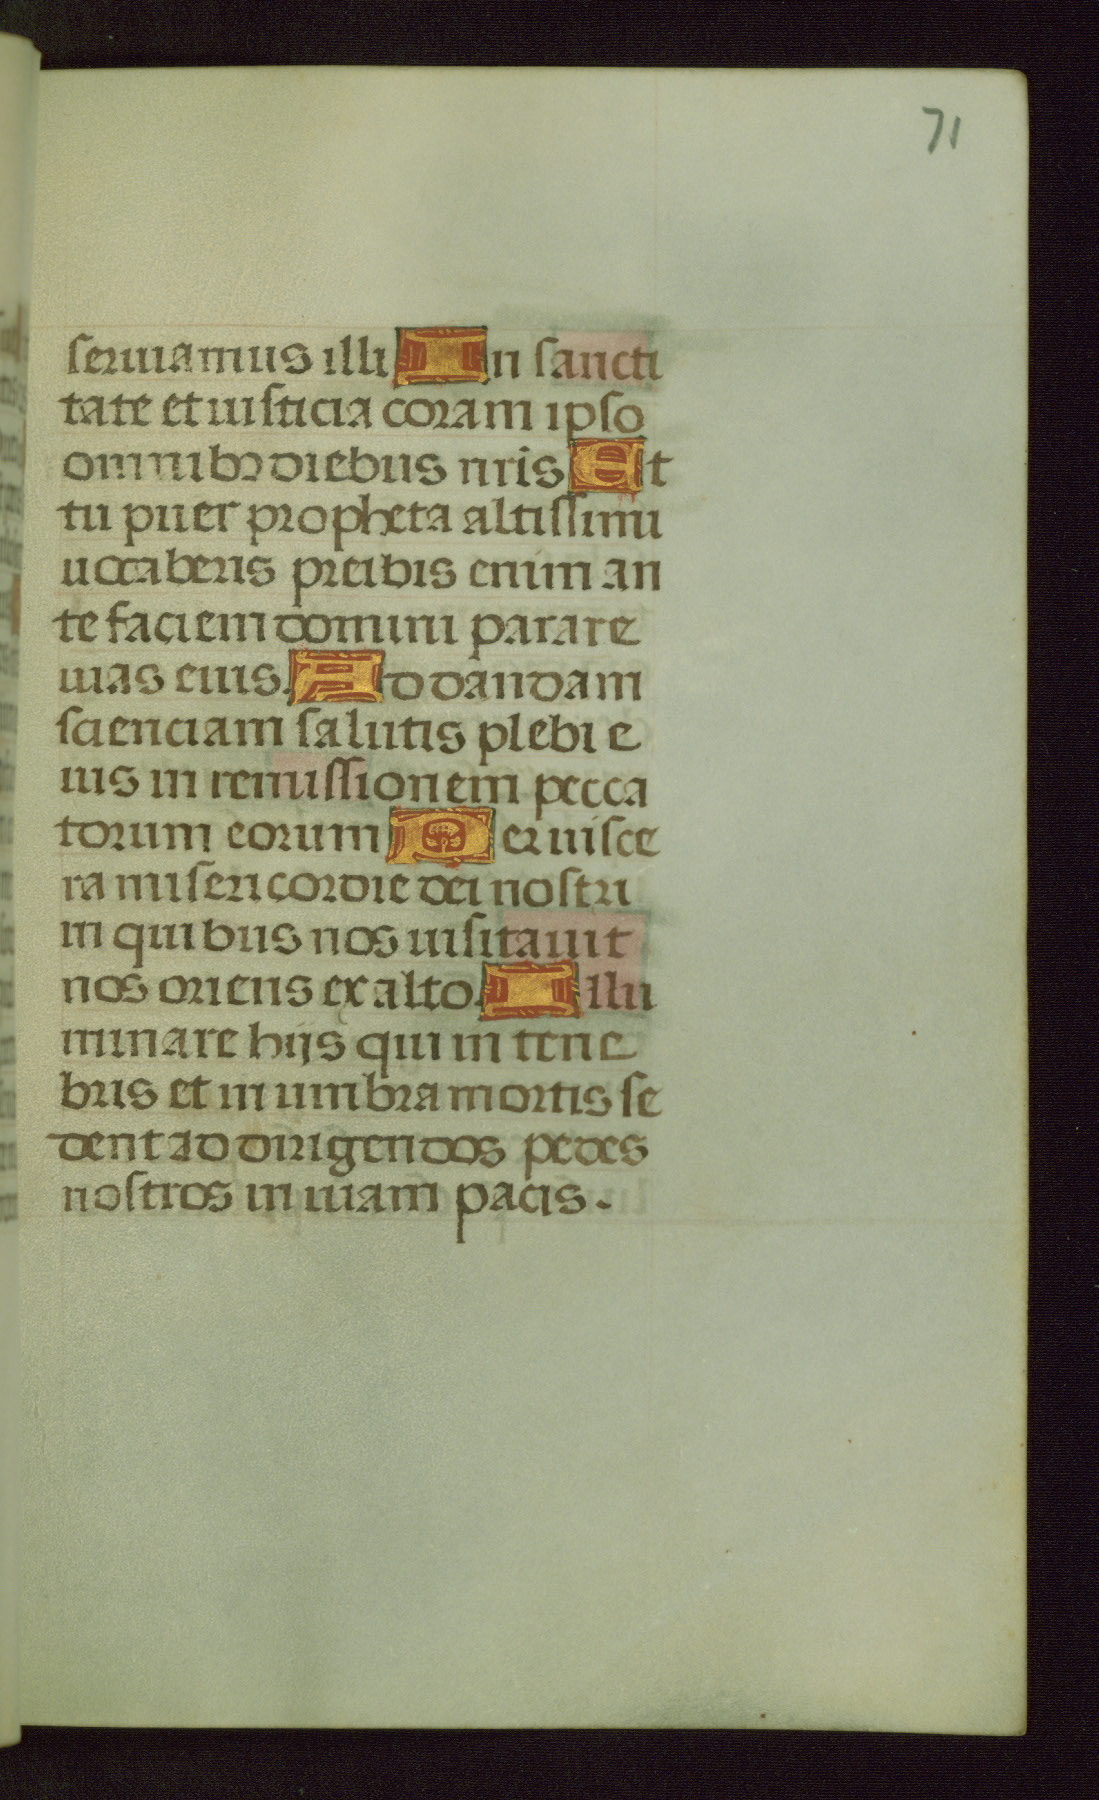 71
seruiamus illi In sancti
tate et iusticia coram ipso
omnibꝫ diebus nris Et
tu puer propheta altissimi
uocaberis preibis enim an
te faciem domini parare
uias eius. Ad dandam
scienciam salutis plebi e
ius in remissionem pecca
torum eorum Per uisce
ra misericordie dei nostri
in quibus nos uisitauit
nos oriens ex alto. Illu
minare hijs qui in tene
bris et in umbra mortis se
dent ad dirigendos pedes
nostros in uiam pacis.